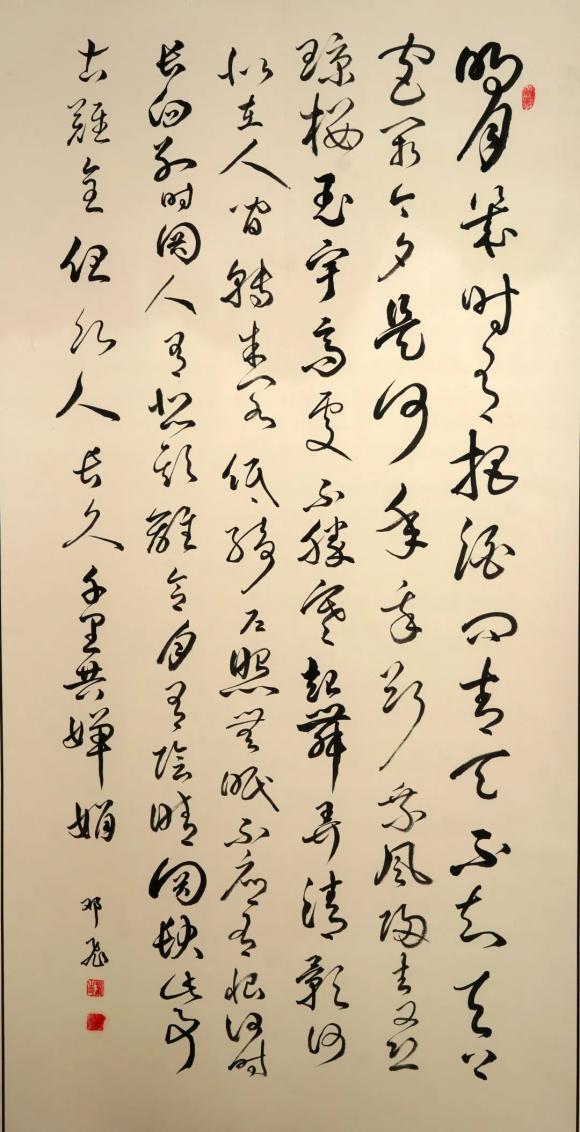 明月幾时有把酒问青天不知天上
宫阙今夕是何年我欲乘风归去又恐
琼楼玉宇高处不胜寒起舞弄清影何
似在人间转朱阁低绮户照無眠不应有恨何时
长向别时圆人有悲欢離合月有陰晴圆缺此事
古難全但愿人长久千里共嬋娟
邓